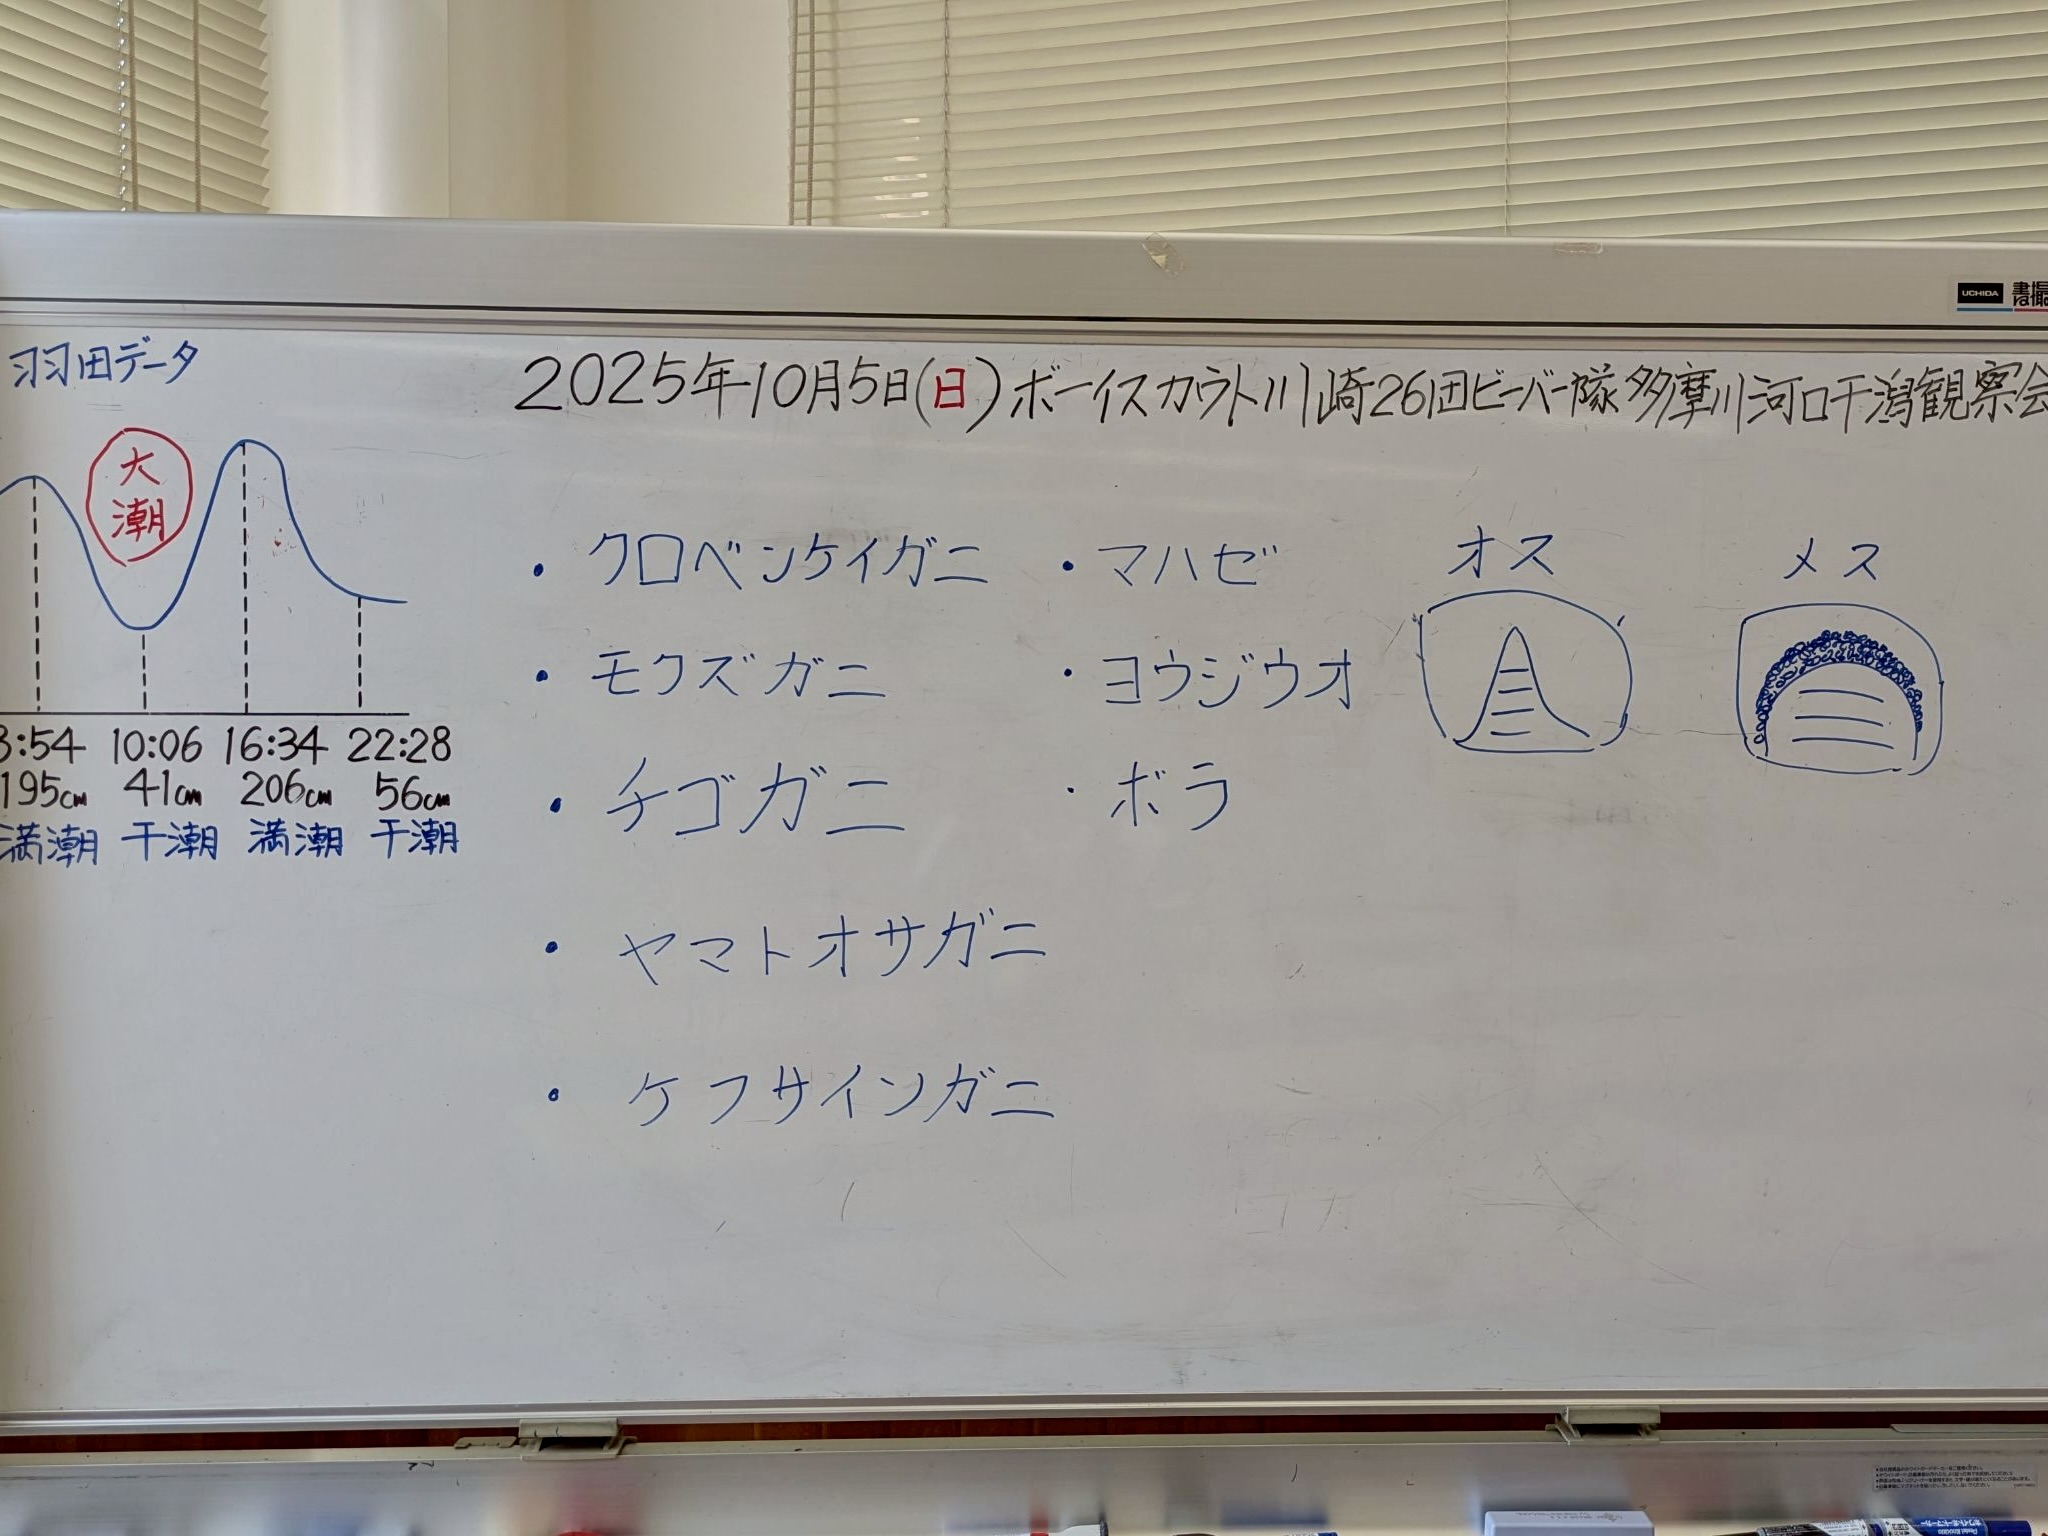 羽田データ
大潮
3:54 10:06 16:34 22:28
195cm 41cm 206cm 56cm
満潮 干潮 満潮 干潮
2025年10月5日(日)ボーイスカウト川崎26団ビーバー隊多摩川河口干潟観察会
・クロベンケイガニ
・モクズガニ
・チゴガニ
・ヤマトオサガニ
・ケフサイソガニ
・マハゼ
・ヨウジウオ
・ボラ
オス
メス
UCHIDA 書撮